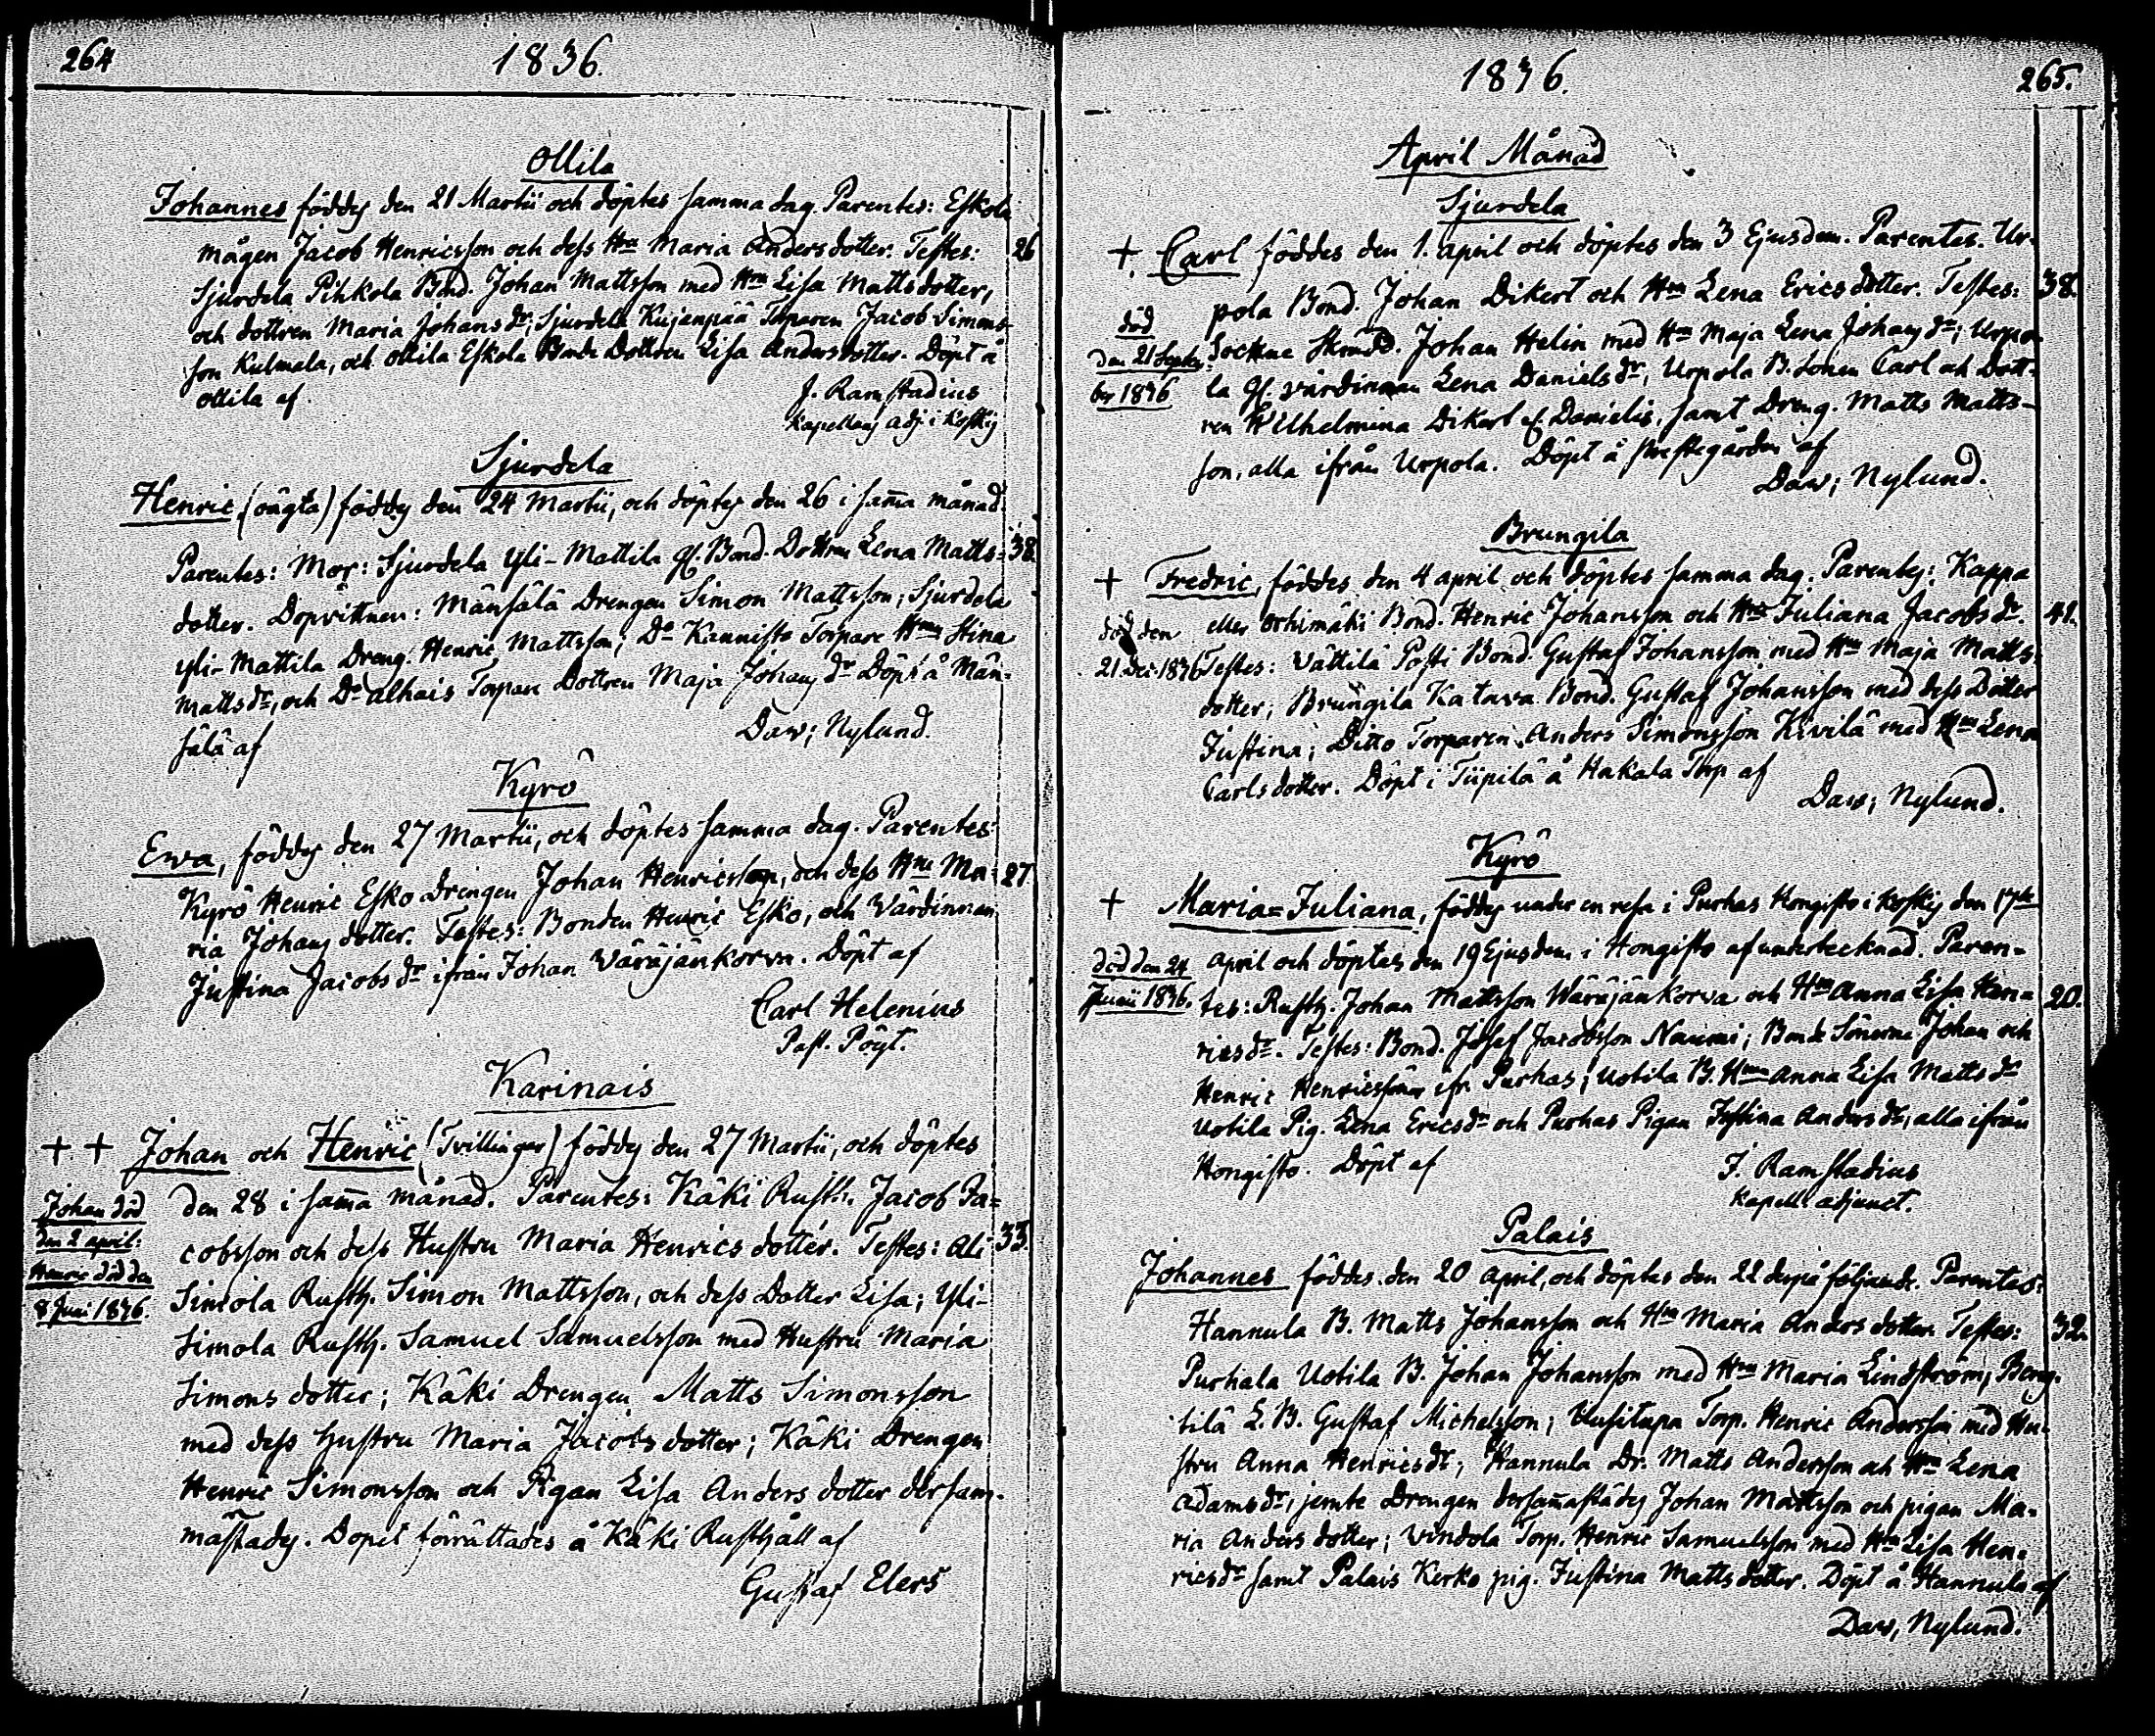 264
1836.
Ollila
Johannes föddes den 21 Martii och döptes samma dag. Parentes: Eskola
mågen Jacob Henricsson och dess Hru Maria Anders dotter. Testes:
26
Sjurdela Pihkola Bond. Johan Mattsson med Hru Lisa Mattsdotter,
och dottren Maria Johansdr; Sjurdela Kujanpää Torparen Jacob Simons-
son Kulmala, och Ollila Eskola Bonde Dottren Lisa Andersdotter. Döpt å
Ollila af
J. Ramstadius
Kapellans Adj. i Koskis
Sjurdela
Henric (oägta) föddes den 24 Martii, och döptes den 26 i sam̄a månad.
Parentes: Mor: Sjurdela Yli-Mattila gl. Bond. Dottren Lena Matts-
38
dotter. Dopvittnen: Mänsälä Drengen Simon Mattsson; Sjurdela
Yli-Mattila Dreng. Henric Mattsson; Do Kannisto Torpare Hrun Stina
Mattsdr, och Do Alhais Torpare Dottren Maja Johans dr Döpt å Män-
sälä af
Dav; Nylund.
Kyrö
Ewa, föddes den 27 Martii, och döptes samma dag. Parentes:
Kyrö Henric Esko Drengen Johan Henricsson, och dess Hru Ma-
27
ria Johans dotter. Testes: Bonden Henric Esko, och Värdinnan
Justina Jacobs dr ifrån Johan Väräjänkorva. Döpt af
Carl Helenius
Past. Pöyt.
Karinais
+ + Johan och Henric (Tvillingar) föddes den 27 Martii, och döptes
Johan död
den 2 april:
Henric död den
8 Juni 1836.
den 28 i sam̄a månad. Parentes: Käki Rusth. Jacob Ja-
cobsson och dess Hustru Maria Henrics dotter. Testes: Ali
33.
Simola Rusth. Simon Mattsson, och dess Dotter Lisa; Yli-
Simola Rusth. Samuel Samuelsson med Hustru Maria
Simons dotter; Käki Drengen Matts Simonsson
med dess Hustru Maria Jacobs dotter; Käki Drengen
Henric Simonsson och Pigan Lisa Anders dotter dersam-
mastades. Dopet förrättades å Käki Rusthåll af
Gustaf Elers
1836.
265.
April Månad
Sjurdela
+. Carl föddes den 1. april och döptes den 3 Ejusdem. Parentes. Ur-
död
den 21 Septem-
ber 1836
pola Bond. Johan Dikert och Hru Lena Ericsdotter. Testes:
38.
Sockne Skrädd. Johan Helin med Hru Maja Lena Johans dr; Urpo-
la gl. värdinnan Lena Daniels dr, Urpola B. sonen Carl och Dott-
ren Wilhelmina Dikert Danielis, samt Dreng. Matts Matts-
son, alla ifrån Urpola. Döpt å prestegården af
Dav; Nylund.
Brungila
+ Fredric, föddes den 4 april och döptes samma dag. Parentes: Kappa
död den
21 Dec. 1836
eller Orhimäki Bond. Henric Johansson och Hru Juliana Jacobs dr.
41.
Testes: Vättilä Posti Bond. Gustaf Johansson med Hru Maja Matts-
dotter; Brungila Katava Bond. Gustaf Johansson med dess Dotter
Justina; Ditto Torparen Anders Simonsson Kivilä med Hru Lena
Carlsdotter. Döpt i Tiipilä å Hakala Torp af
Dav; Nylund.
Kyrö
+ Maria=Juliana, föddes under en resa i Purhas Hongisto i Koskis den 17de
död den 24
Junii 1836.
April och döptes den 19 Ejusdem i Hongisto af undertecknad. Paren-
tes: Rusth. Johan Mattsson Wäräjänkorva och Hru Anna Lisa Hen-
20.
ricsdr. Testes: Bond. Josef Jacobsson Naumi; Bonde Sönerna Johan och
Henric Henricssöner ifr. Purhas; Uotila B. Hrun Anna Lisa Matts dr
Uotila Pig. Lena Ericsdr och Purhas Pigan Justina Anders dr, alla ifrån
Hongisto. Döpt af
J. Ramstadius
Kapell. adjunct.
Palais
Johannes föddes den 20 april, och döptes den 22 derpå följande. Parentes:
Hannula B. Matts Johansson och Hru Maria Anders dotter. Testes:
32.
Purhala Uotila B. Johan Johansson med Hru Maria Lindström; Beng-
tilä L. B. Gustaf Michelsson; Uusitupa Torp. Henric Andersson med Hu-
stru Anna Henricsdr; Hannula Dr. Matts Andersson och Hru Lena
Adamsdr, jemte Drengen dersam̄astädes Johan Mattsson och pigan Ma-
ria Anders dotter; Vindola Torp. Henric Samuelsson med Hru Lisa Hen-
ricsdr samt Palais Kerko pig. Justina Matts dotter. Döpt å Hannula af
Dav, Nylund.